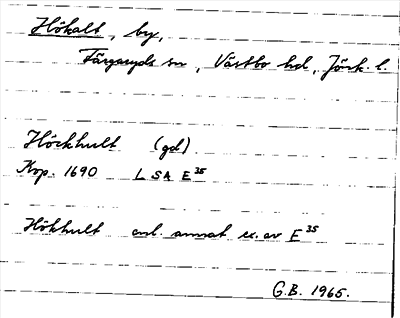 Hökalt, by,
Färgaryds sn, Västbo hd, Jönk. l.
Höckhult (gd)
Kop. 1690 LSA E³⁵
Hökhult enl. annat ex. av E³⁵
G.B. 1965.